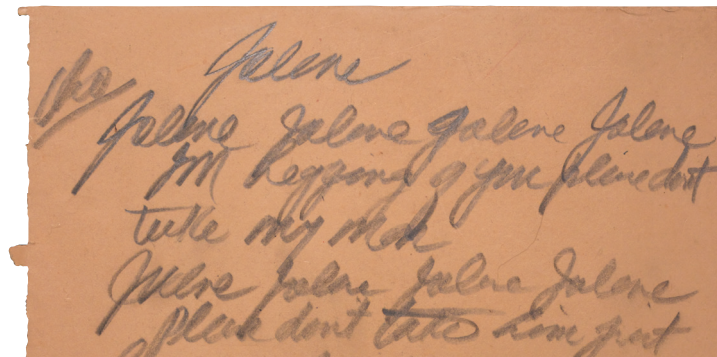 Jolene
Cho
Jolene Jolene Jolene Jolene
I'm begging of you please dont
take my man
Jolene Jolene Jolene Jolene
Please dont take him just